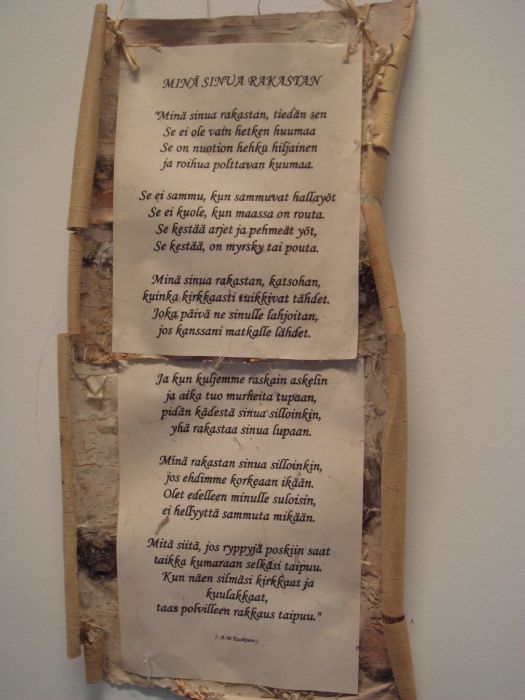 MINÄ SINUA RAKASTAN
"Minä sinua rakastan, tiedän sen
Se ei ole vain hetken huumaa
Se on nuotion hehku hiljainen
ja roihua polttavan kuumaa.
Se ei sammu, kun sammuvat hallayöt
Se ei kuole, kun maassa on routa.
Se kestää arjet ja pehmeät yöt,
Se kestää, on myrsky tai pouta.
Minä sinua rakastan, katsohan,
kuinka kirkkaasti tuikkivat tähdet.
Joka päivä ne sinulle lahjoitan,
jos kanssani matkalle lähdet.
Ja kun kuljemme raskain askelin
ja aika tuo murheita tupaan,
pidän kädestä sinua silloinkin,
yhä rakastaa sinua lupaan.
Minä rakastan sinua silloinkin,
jos ehdimme korkeaan ikään.
Olet edelleen minulle suloisin,
ei hellyyttä sammuta mikään.
Mitä siitä, jos ryppyjä poskiin saat
taikka kumaraan selkäsi taipuu.
Kun näen silmäsi kirkkaat ja
kuulakkaat,
taas polvilleen rakkaus taipuu."
(- A-M